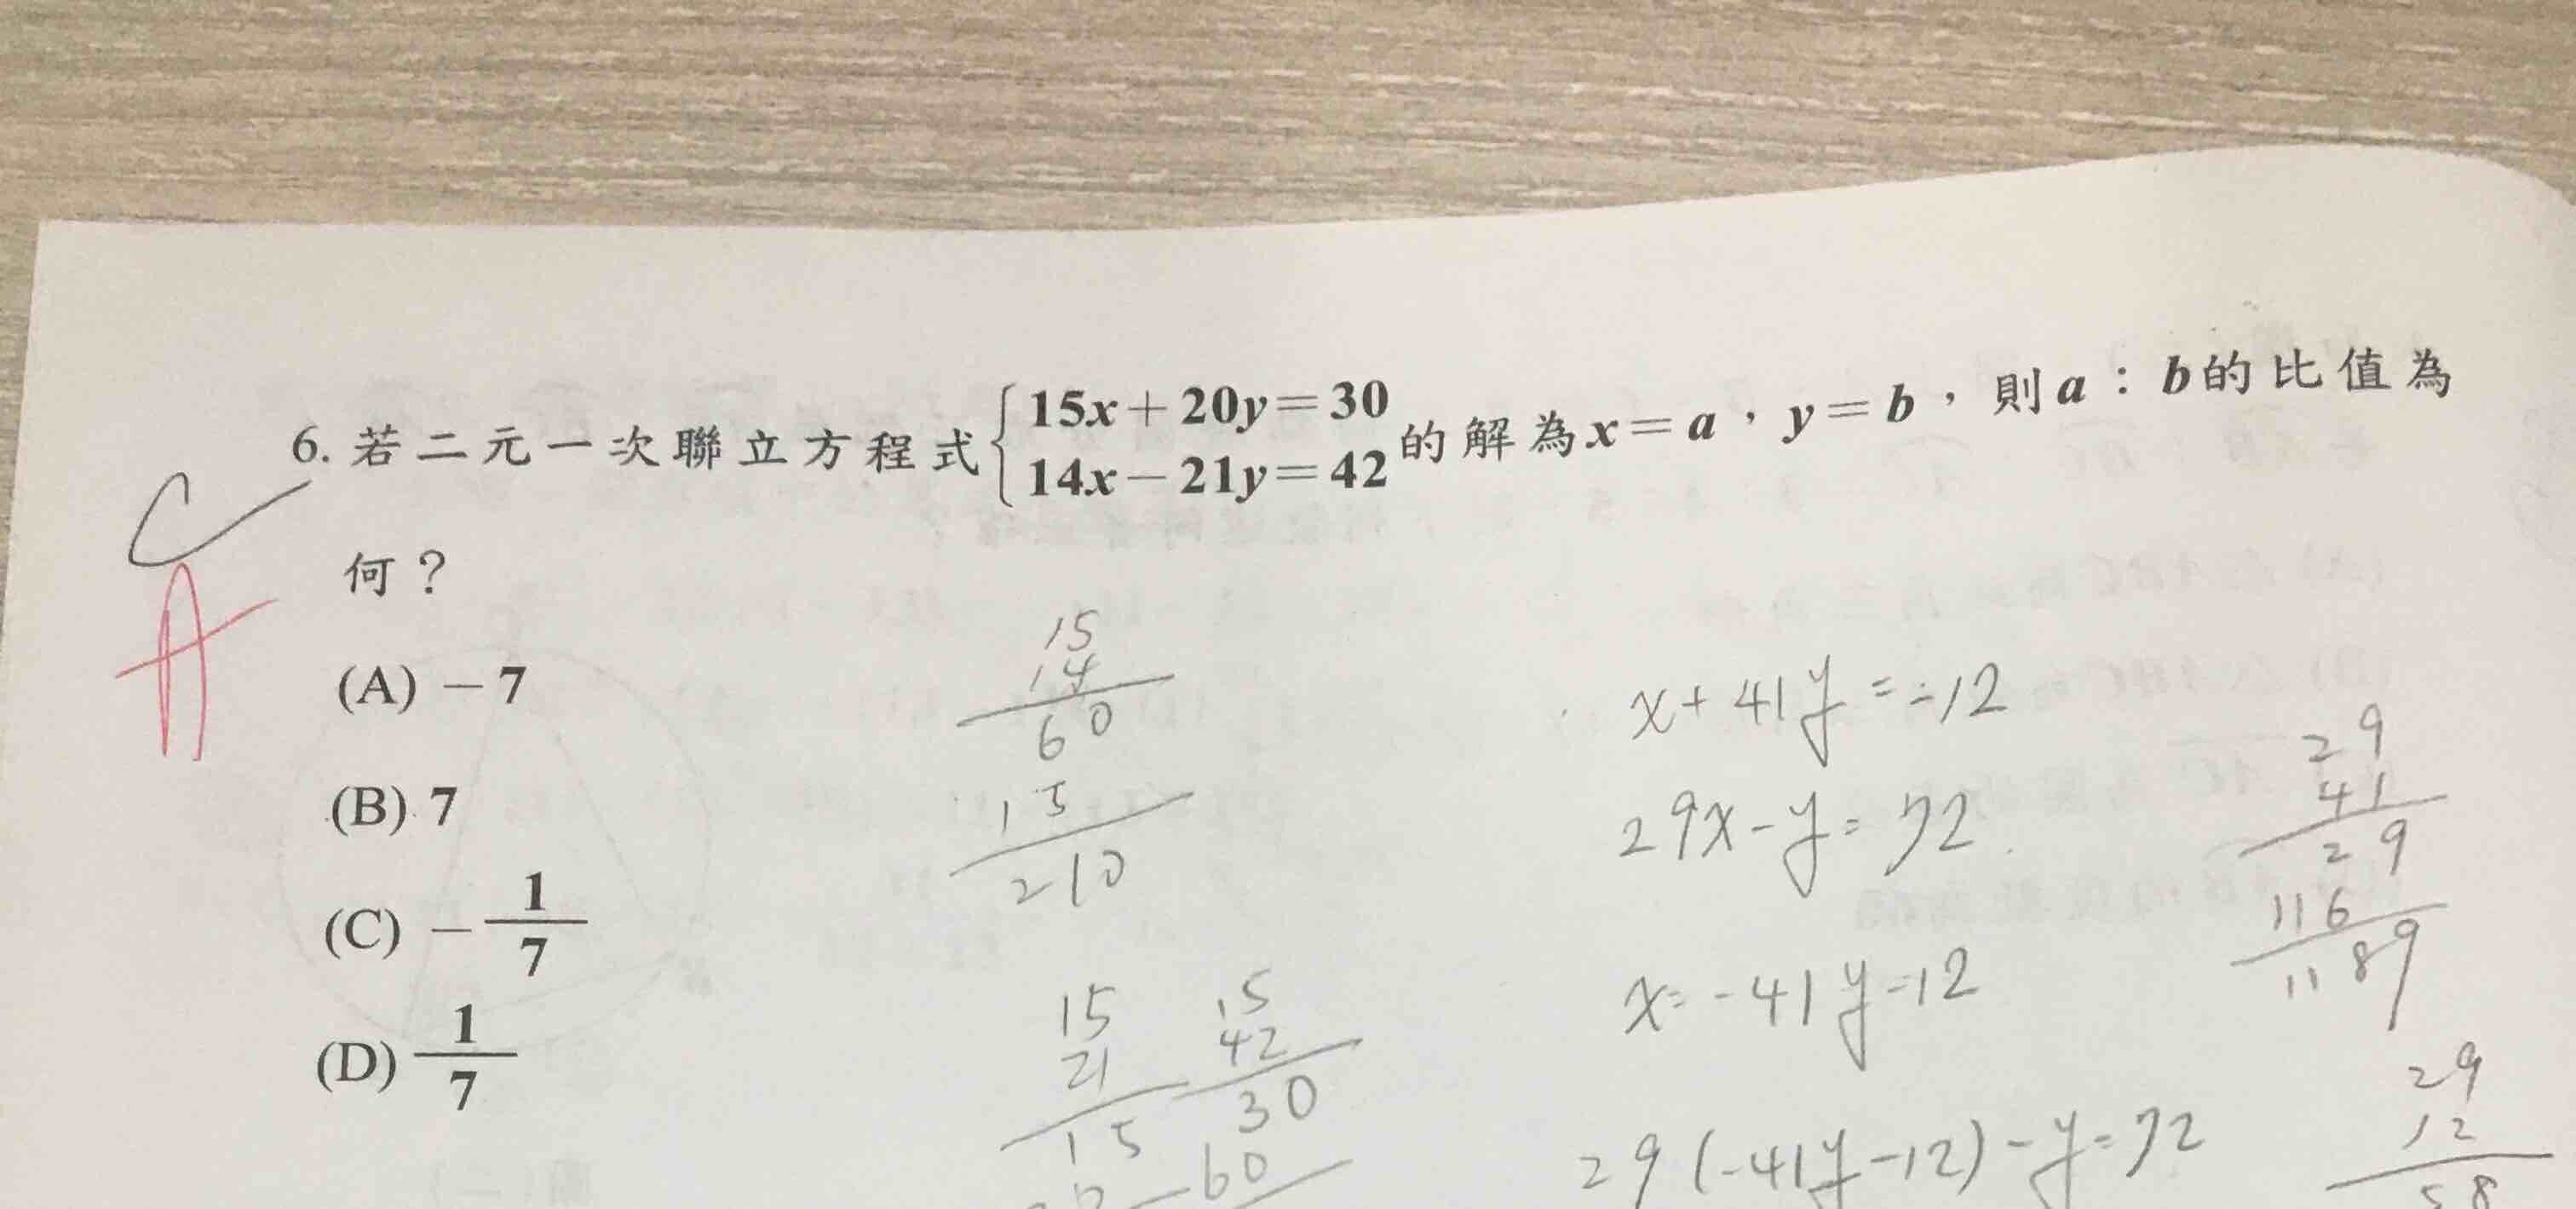 6. 若二元一次聯立方程式{15x+20y=30
14x-21y=42的解為x=a,y=b,則a:b的比值為
何?
C
A
(A) -7
(B) 7
(C) -1/7
(D) 1/7
15
14
60
15
210
15 15
21 42
15 30
60
x+41y=-12
29x-y=72
x=-41y-12
29(-41y-12)-y=72
29
41
29
116
1189
29
12
58